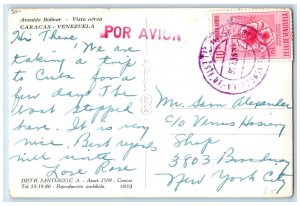 30-
Avenida Bolívar - Vista aérea
CARACAS - VENEZUELA
POR AVION
Hi There
We are
taking a trip
to Cuba for a
few days The
boat stopped
here. It is very
nice. Best regards
will write
Love Rose
DISTR. SANTIAGO C. A. - Apart. 2589 - Caracas
Tel. 55-19.80 - Reproducción prohibida.
Mr. Sam Alexander
c/o Venus Hosiery
Shop
3803 Broadway
New York City